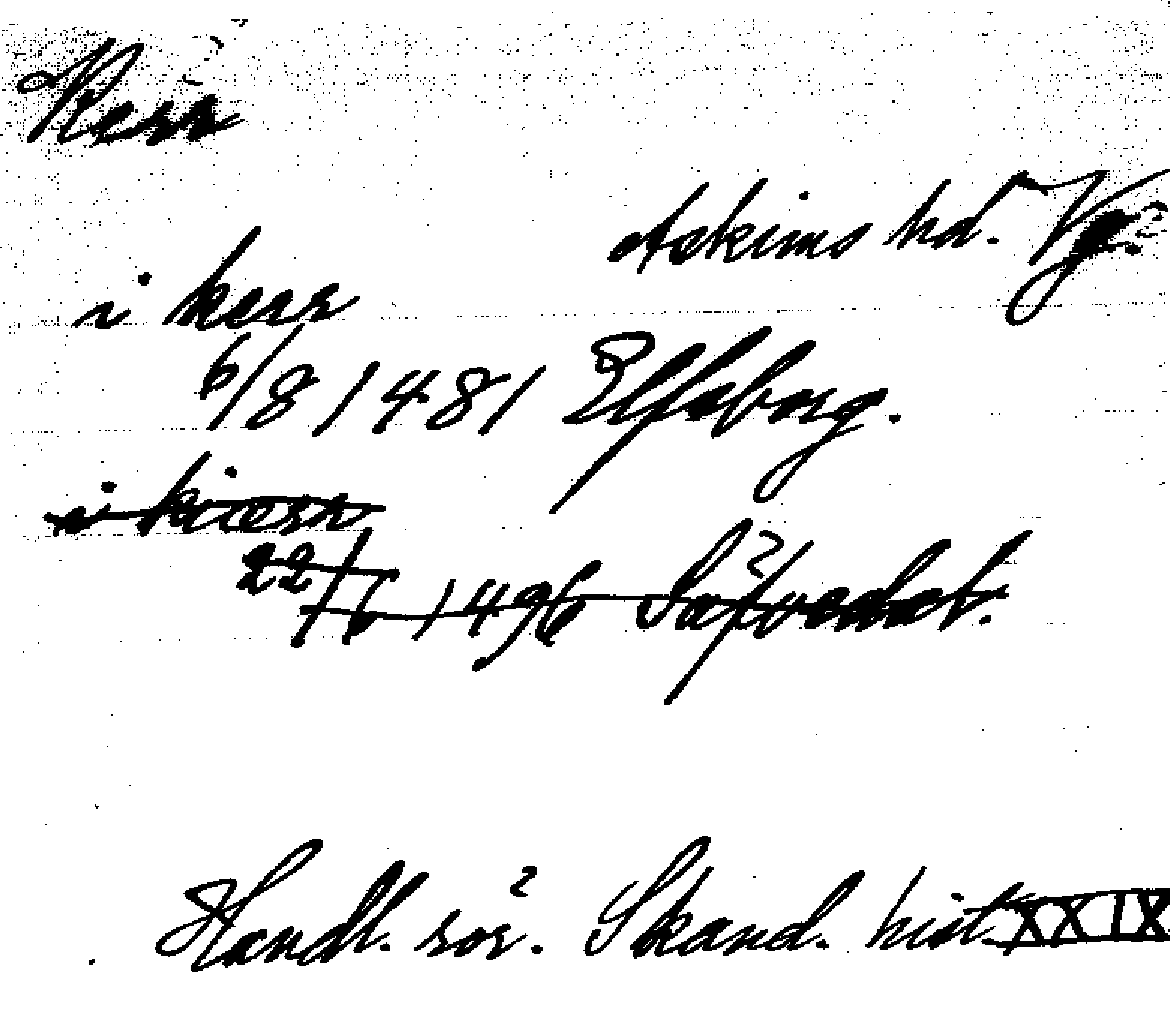 Kerr
Askims hd. Vg.
i kerr
6/8 1481 Elfsborg.
i kiærr
22/6 1496 Säfvedal.
Handl. rör. Skand. hist. XXIX